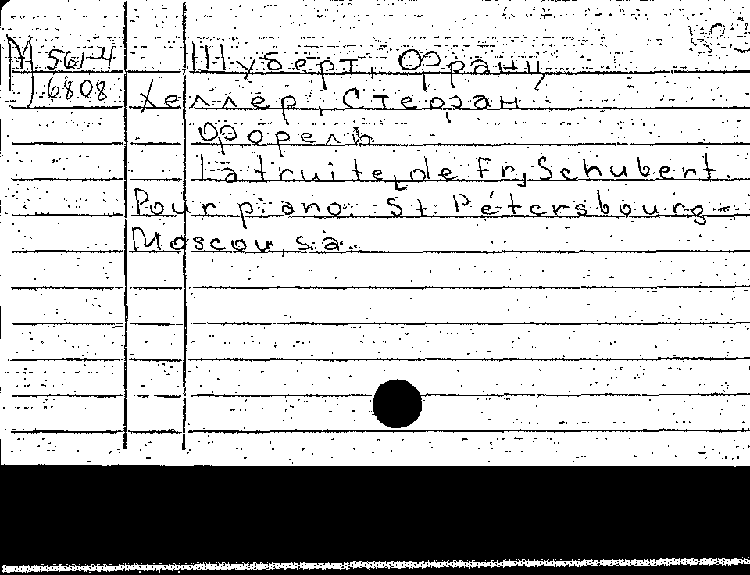 М 561-4 Шуберт, Франц
6808 Хеллер, Стефан
Форель
La truite, de Fr. Schubert.
Pour piano. St. Pétersbourg-
Moscou, s.a.